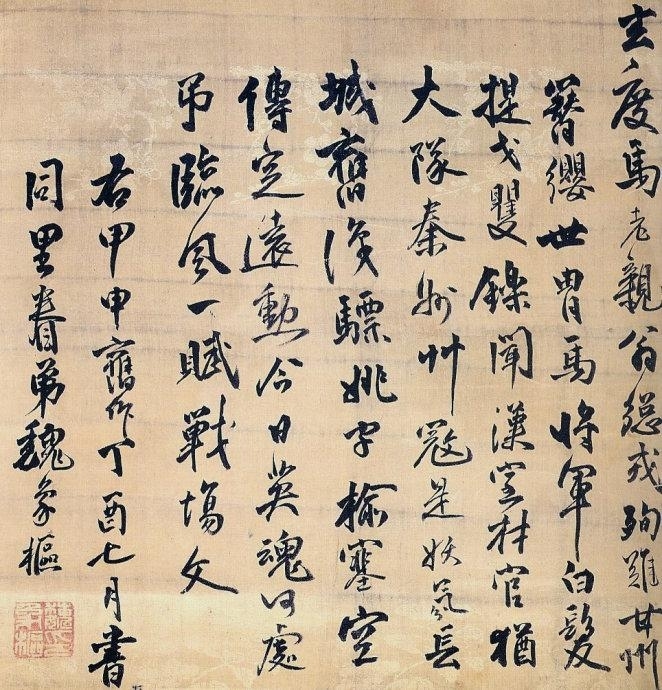 度馬老親翁總戎殉難甘州
簪纓世冑馬將軍白髮
提戈矍鑠聞漢室材官猶
大隊秦州艸寇是妖氛長
城舊驃姚字榆塞空
傳定遠勳今日英魂何處
弔臨風一賦戰場文
右甲申舊作丁酉七月書
同里眷弟魏象樞